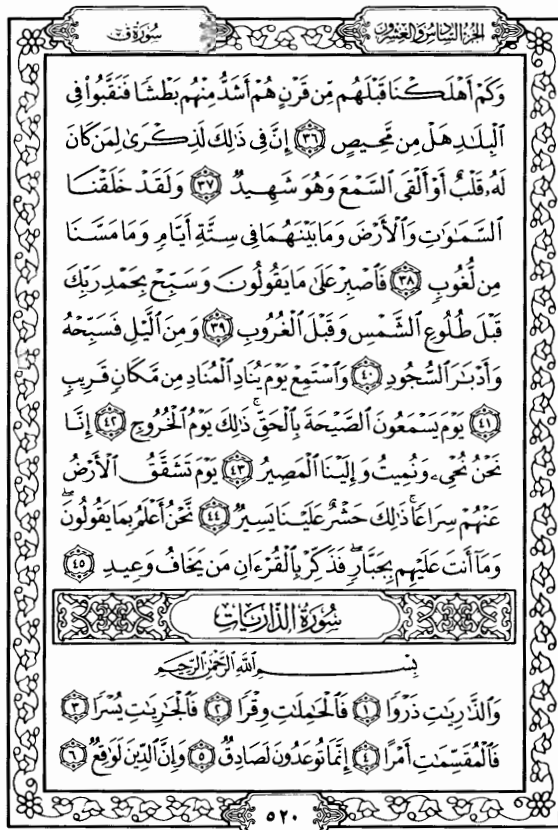 سورة ق
الجزء السادس والعشرون
وَكَمْ أَهْلَكْنَا قَبْلَهُم مِّن قَرْنٍ هُمْ أَشَدُّ مِنْهُم بَطْشًا فَنَقَّبُوا۟ فِى
ٱلْبِلَـٰدِ هَلْ مِن مَّحِيصٍ ٣٦ إِنَّ فِى ذَٰلِكَ لَذِكْرَىٰ لِمَن كَانَ
لَهُۥ قَلْبٌ أَوْ أَلْقَى ٱلسَّمْعَ وَهُوَ شَهِيدٌ ٣٧ وَلَقَدْ خَلَقْنَا
ٱلسَّمَـٰوَٰتِ وَٱلْأَرْضَ وَمَا بَيْنَهُمَا فِى سِتَّةِ أَيَّامٍ وَمَا مَسَّنَا
مِن لُّغُوبٍ ٣٨ فَٱصْبِرْ عَلَىٰ مَا يَقُولُونَ وَسَبِّحْ بِحَمْدِ رَبِّكَ
قَبْلَ طُلُوعِ ٱلشَّمْسِ وَقَبْلَ ٱلْغُرُوبِ ٣٩ وَمِنَ ٱلَّيْلِ فَسَبِّحْهُ
وَأَدْبَـٰرَ ٱلسُّجُودِ ٤٠ وَٱسْتَمِعْ يَوْمَ يُنَادِ ٱلْمُنَادِ مِن مَّكَانٍ قَرِيبٍ
٤١ يَوْمَ يَسْمَعُونَ ٱلصَّيْحَةَ بِٱلْحَقِّ ۚ ذَٰلِكَ يَوْمُ ٱلْخُرُوجِ ٤٢ إِنَّا
نَحْنُ نُحْىِۦ وَنُمِيتُ وَإِلَيْنَا ٱلْمَصِيرُ ٤٣ يَوْمَ تَشَقَّقُ ٱلْأَرْضُ
عَنْهُمْ سِرَاعًا ۚ ذَٰلِكَ حَشْرٌ عَلَيْنَا يَسِيرٌ ٤٤ نَّحْنُ أَعْلَمُ بِمَا يَقُولُونَ ۖ
وَمَآ أَنتَ عَلَيْهِم بِجَبَّارٍ ۖ فَذَكِّرْ بِٱلْقُرْءَانِ مَن يَخَافُ وَعِيدِ ٤٥
سُورَةُ الذَّارِيَاتِ
بِسْمِ ٱللَّهِ ٱلرَّحْمَـٰنِ ٱلرَّحِيمِ
وَٱلذَّٰرِيَـٰتِ ذَرْوًا ١ فَٱلْحَـٰمِلَـٰتِ وِقْرًا ٢ فَٱلْجَـٰرِيَـٰتِ يُسْرًا ٣
فَٱلْمُقَسِّمَـٰتِ أَمْرًا ٤ إِنَّمَا تُوعَدُونَ لَصَادِقٌ ٥ وَإِنَّ ٱلدِّينَ لَوَٰقِعٌ ٦
٥٢٠